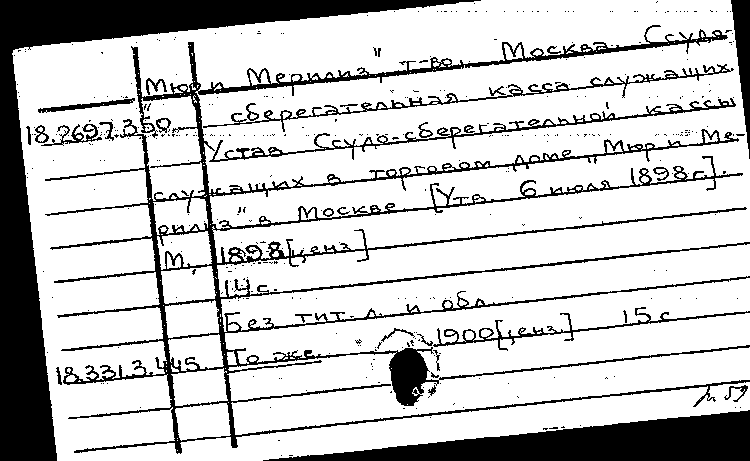 „Мюр и Мерилиз", т-во. Москва. Ссудо-
18.2697.350 сберегательная касса служащих.
Устав Ссудо-сберегательной кассы
служащих в торговом доме „Мюр и Ме-
рилиз" в Москве [Утв. 6 июля 1898 г.].
М., 1898 [ценз]
14 с.
Без тит. л. и обл.
18.331.3.445. То же. 1900 [ценз.] 15 с